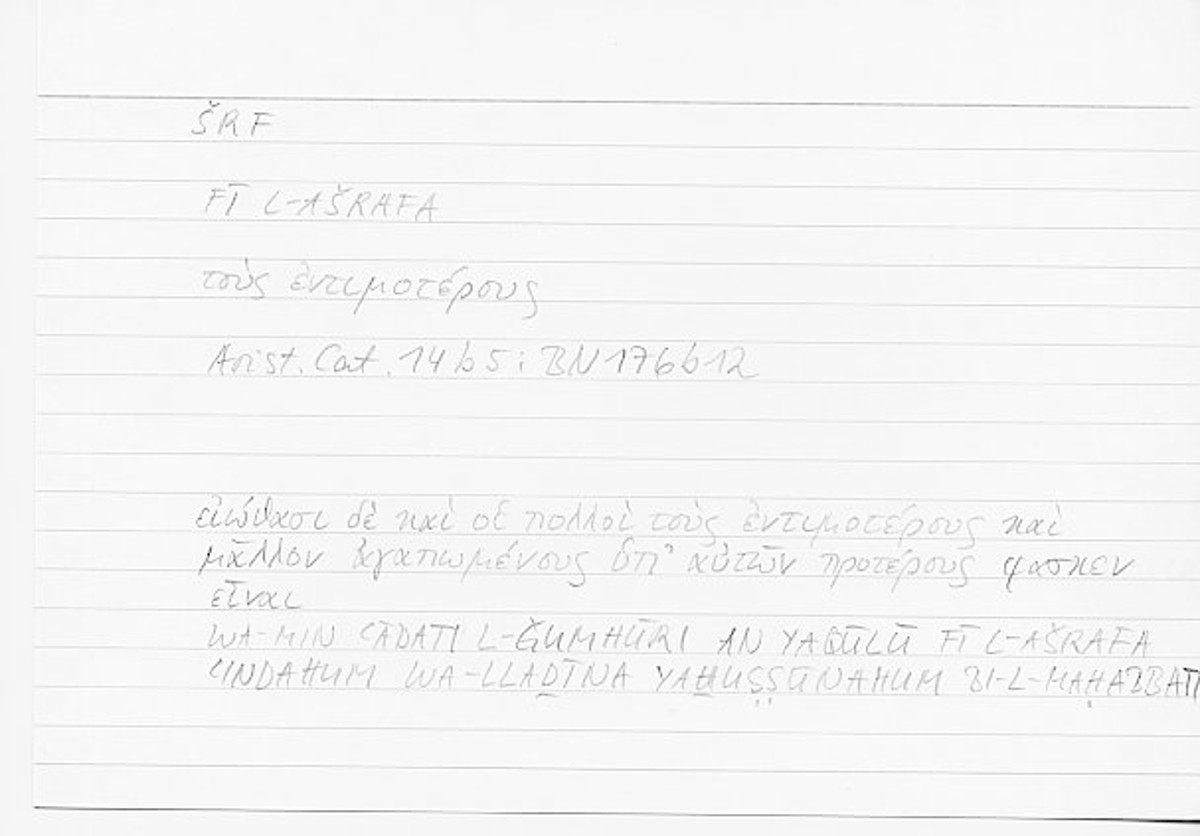 ŠRF
FĪ L-AŠRAFA
τοὺς ἐντιμοτέρους
Arist. Cat. 14b5; BN 176b12
εἰώθασι δὲ καὶ οἱ πολλοὶ τοὺς ἐντιμοτέρους καὶ
μᾶλλον ἀγαπωμένους ὑπ' αὐτῶν προτέρους φασκεν
εἶναι
WA-MIN ʿĀDATI L-ǦUMHŪRI AN YAQŪLŪ FĪ L-AŠRAFA
ʿINDAHUM WA-LLAḎĪNA YAḪUṢṢŪNAHUM BI-L-MAḤABBATI